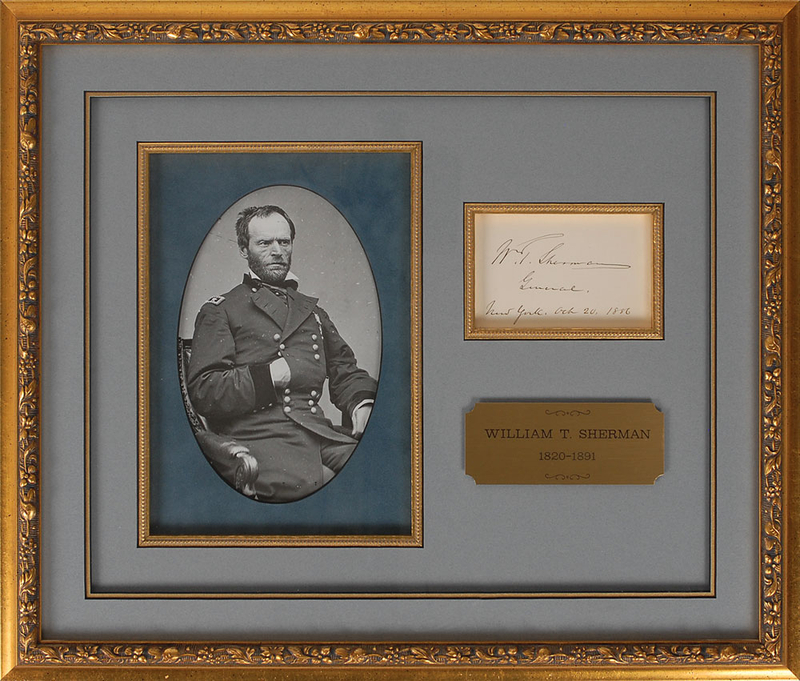 Wm. T. Sherman
General.
New York. Oct 20, 1886
WILLIAM T. SHERMAN
1820-1891